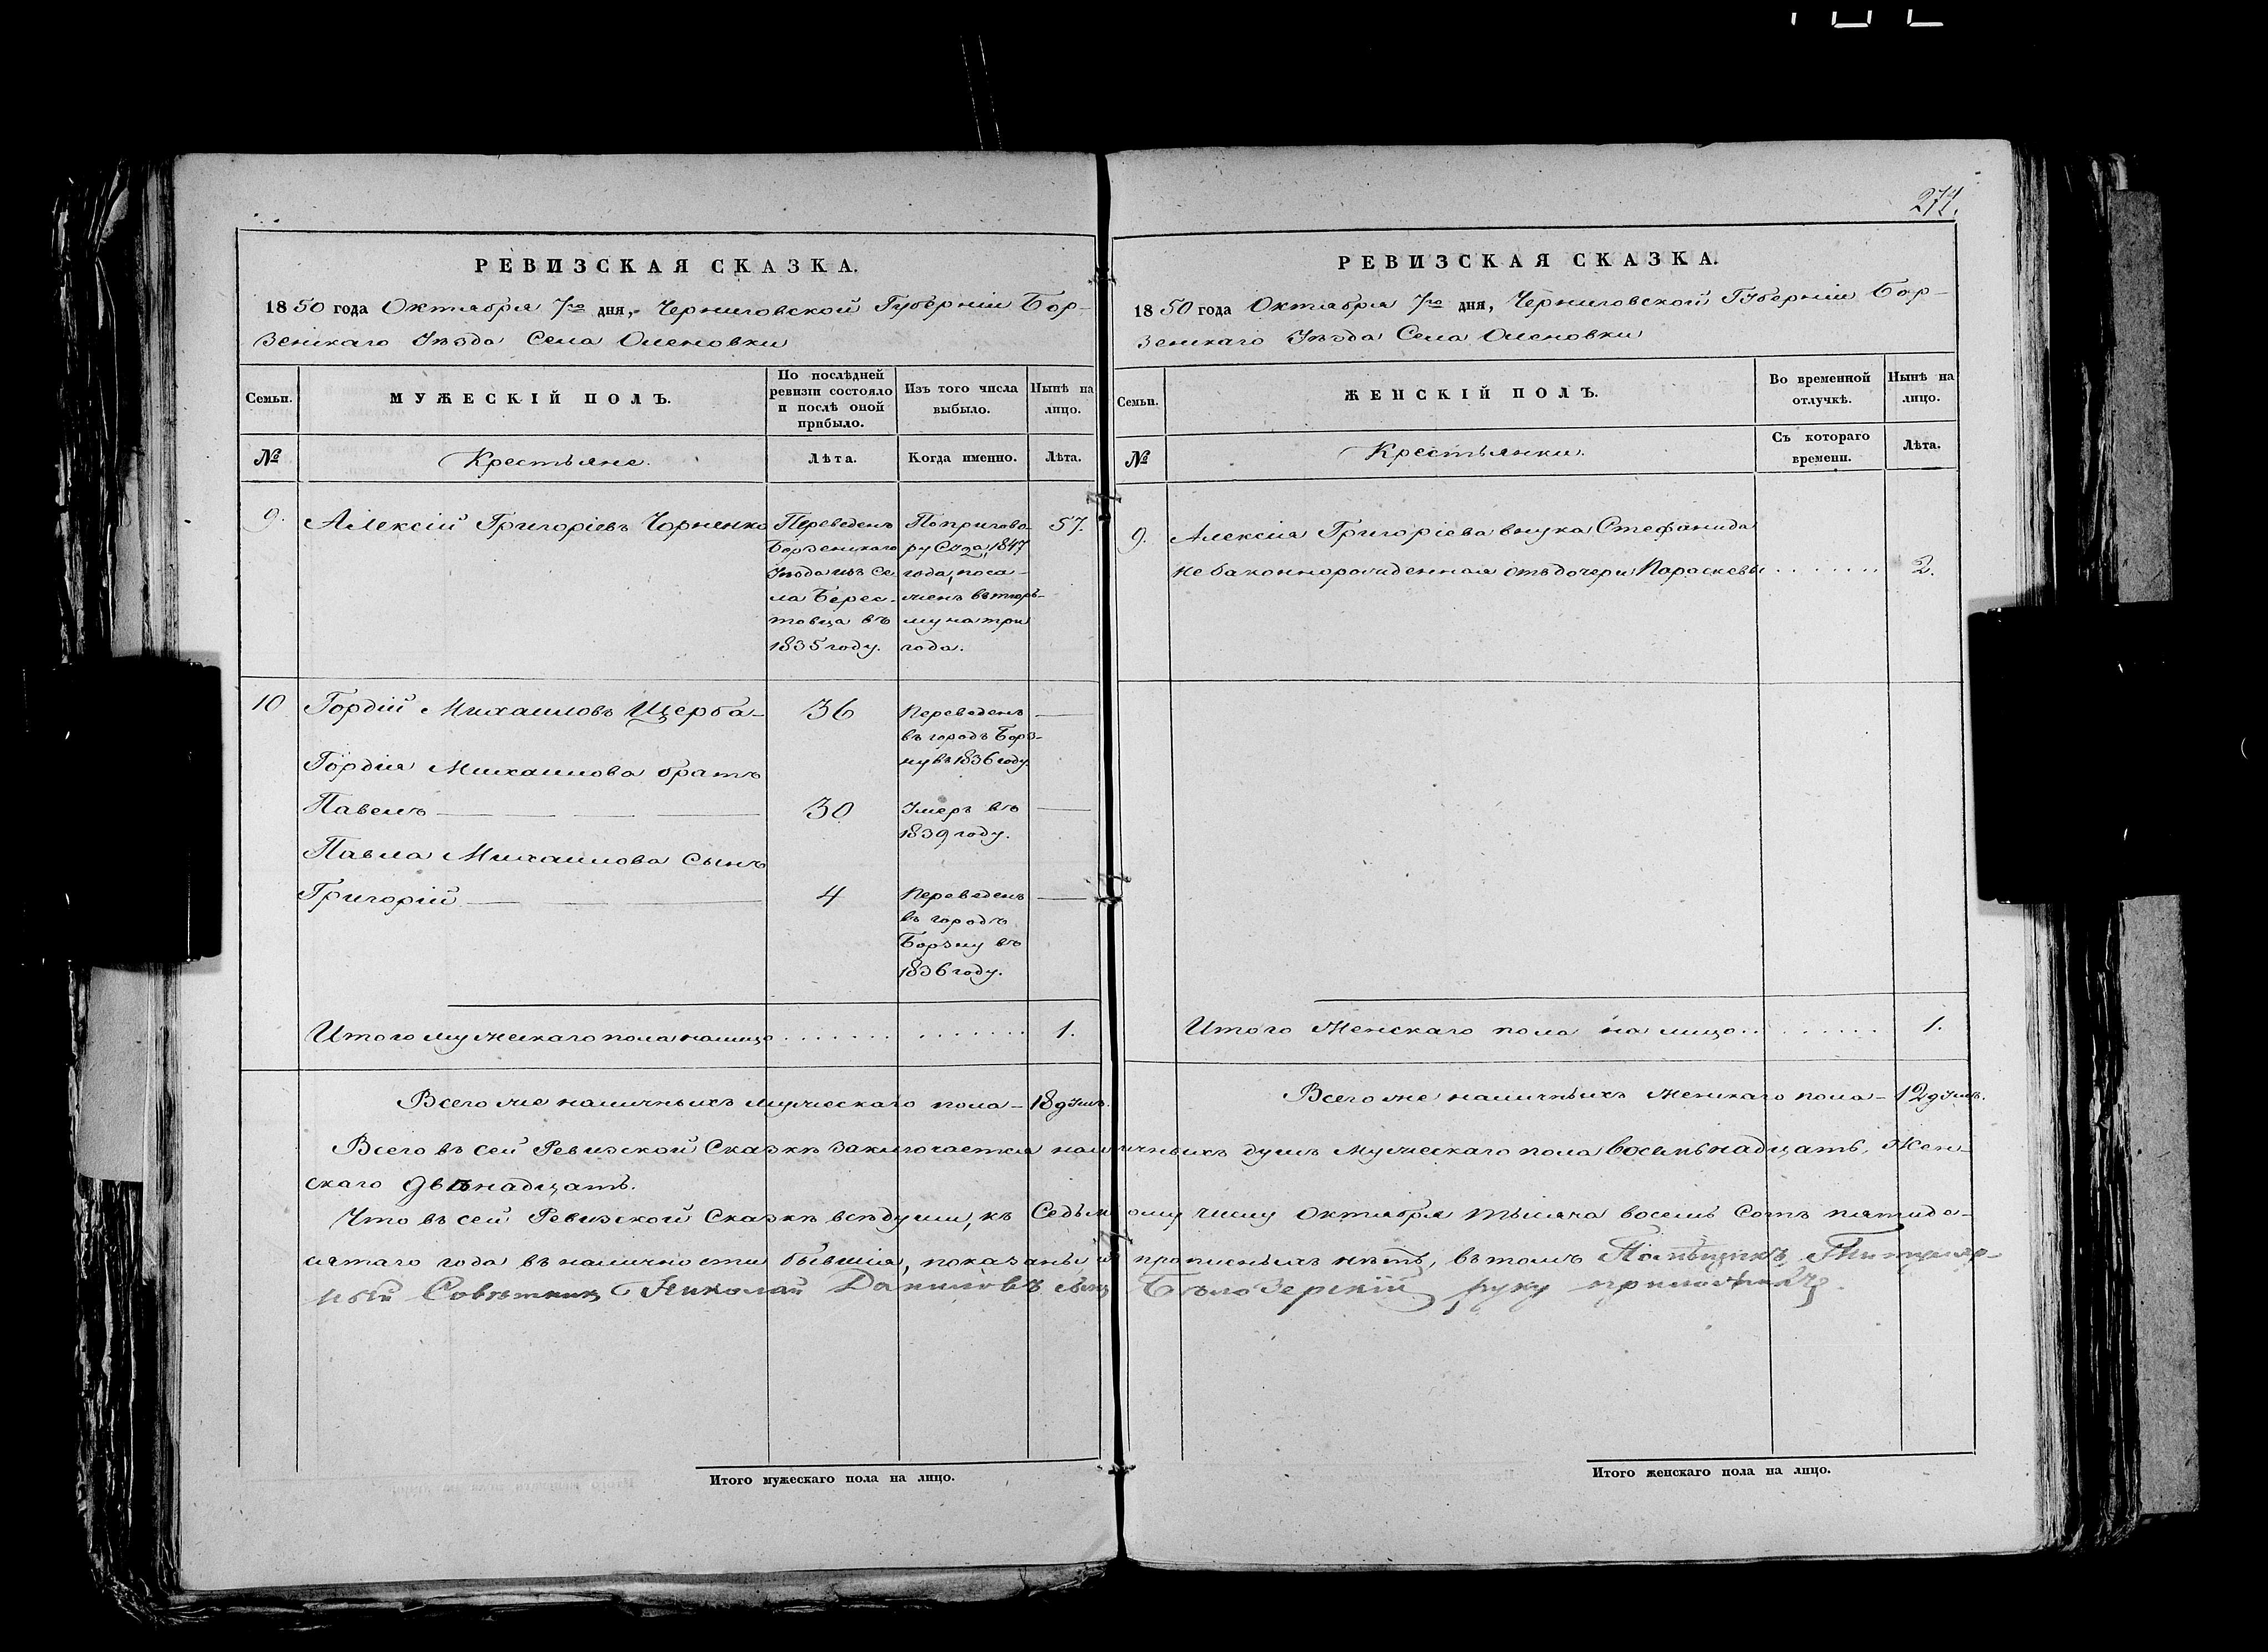 274.
РЕВИЗСКАЯ СКАЗКА.
1850 года Октября 7го дня, Черниговской Губерніи Бор-
зенскаго Уѣзда Села Оленовки
Семьи.
МУЖЕСКІЙ ПОЛЪ.
По послѣдней
ревизіи состояло
и послѣ оной
прибыло.
Изъ того числа
выбыло.
Нынѣ на
лицо.
№
Крестьяне.
Лѣта.
Когда именно.
Лѣта.
9.
Алексій Григоріевъ Чорненко
Переведенъ
Борзенскаго
Уѣзда изъ Се
ла Берес-
товца въ
1835 году.
По пригово-
ру Суда, 1847
года, поса-
женъ въ тюрь-
му на три
года.
57.
10
Гордій Михаиловъ Щерба-
36
Переведенъ
въ городъ Борз-
ну въ 1836 году.
Гордія Михаилова братъ
Павелъ
30
Умеръ въ
1839 году.
Павла Михаилова Сынъ
Григорій
4
Переведенъ
въ городъ
Борзну въ
1836 году.
Итого мужескаго пола налицо
1.
Всего же наличныхъ мужескаго пола - 18 душъ.
РЕВИЗСКАЯ СКАЗКА.
1850 года Октября 7го дня, Черниговской Губерніи Бор-
зенскаго Уѣзда Села Оленовки
Семьи.
ЖЕНСКІЙ ПОЛЪ.
Во временной
отлучкѣ.
Нынѣ на
лицо.
№
Крестьянки.
Съ котораго
времени.
Лѣта.
9.
Алексія Григоріева внука Стефанида
незаконнорожденная отъ дочери Параскевы
2.
Итого Женскаго пола на лицо
1.
Всего же наличныхъ женскаго пола - 12 душъ.
Всего въ сей Ревизской Сказкѣ заключается наличныхъ душъ мужескаго пола восемьнадцать, Жен-
скаго двѣнадцать.
Что въ сей Ревизской Сказкѣ всѣ души, къ Седьмому числу Октября тысяча восемь сотъ пятиде-
сятаго года въ наличности бывшія, показаны и прописныхъ нѣтъ, въ томъ Помѣщикъ Титуляр-
ный Совѣтникъ Николай Даниловъ сынъ Бѣлозерскій руку приложилъ.
Итого мужескаго пола на лицо.
Итого женскаго пола на лицо.